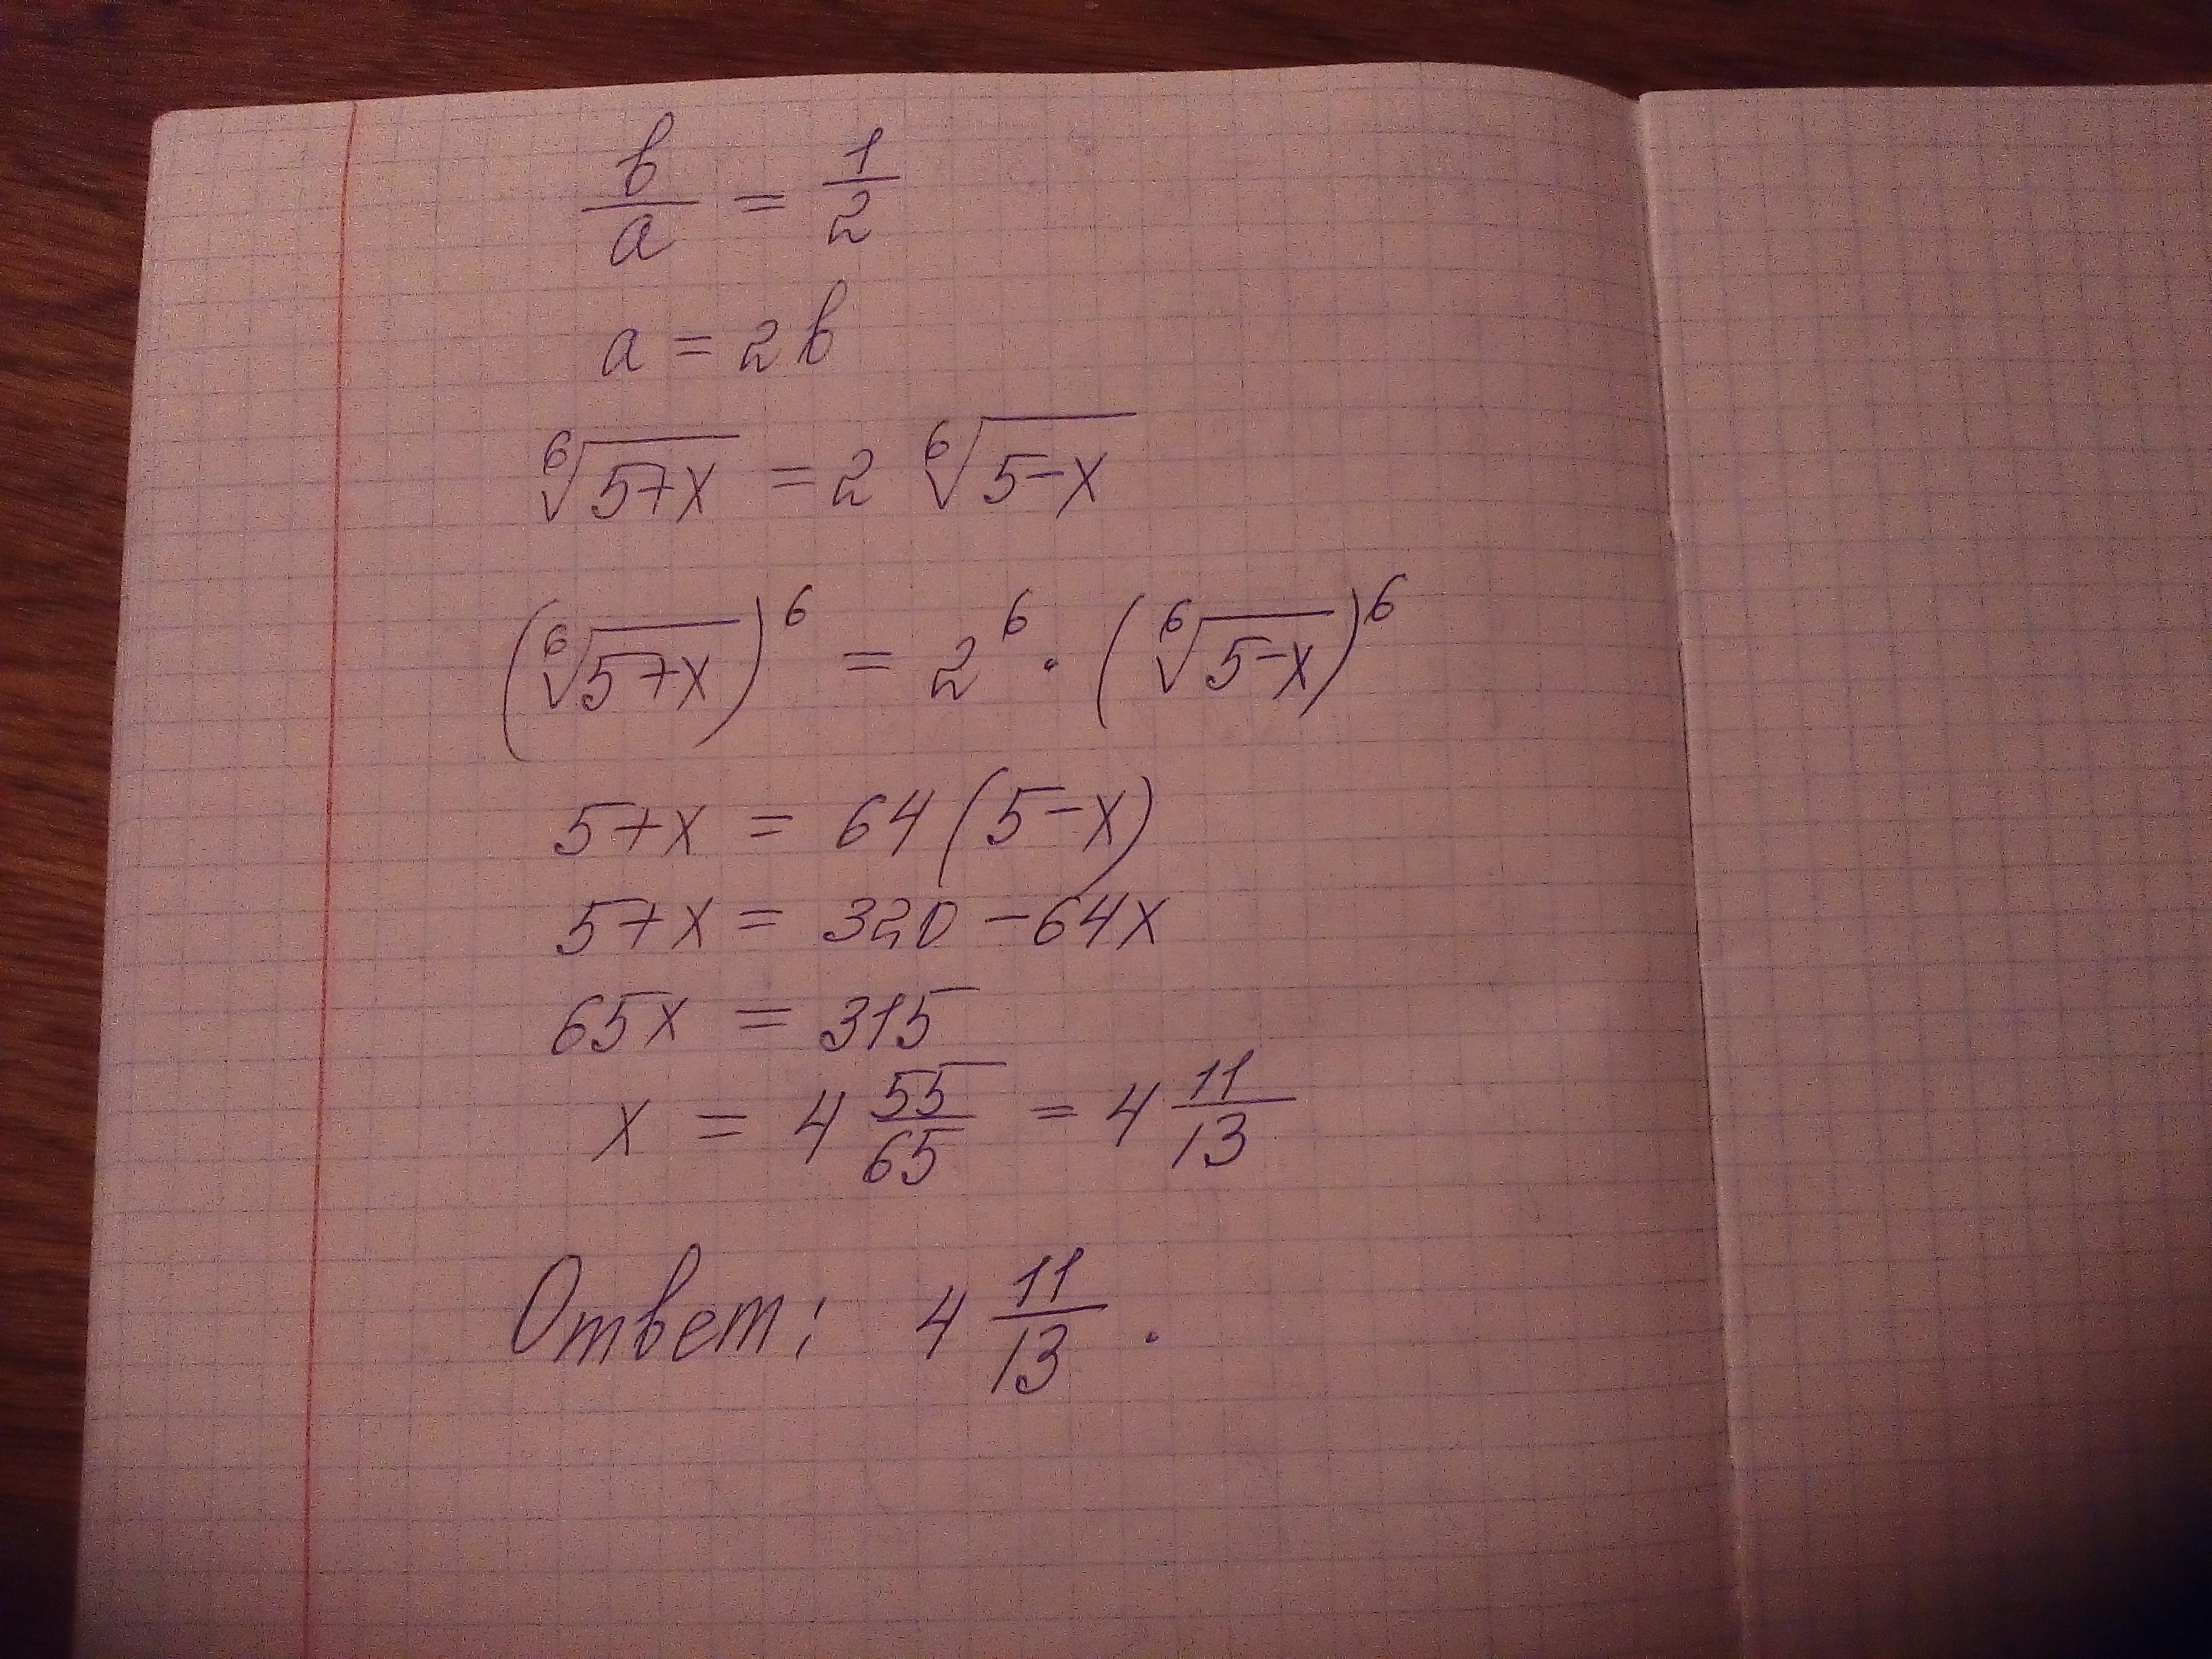 b/a = 1/2
a = 2b
⁶√(5+x) = 2 ⁶√(5-x)
(⁶√(5+x))⁶ = 2⁶ · (⁶√(5-x))⁶
5+x = 64(5-x)
5+x = 320 - 64x
65x = 315
x = 4 55/65 = 4 11/13
Ответ: 4 11/13.